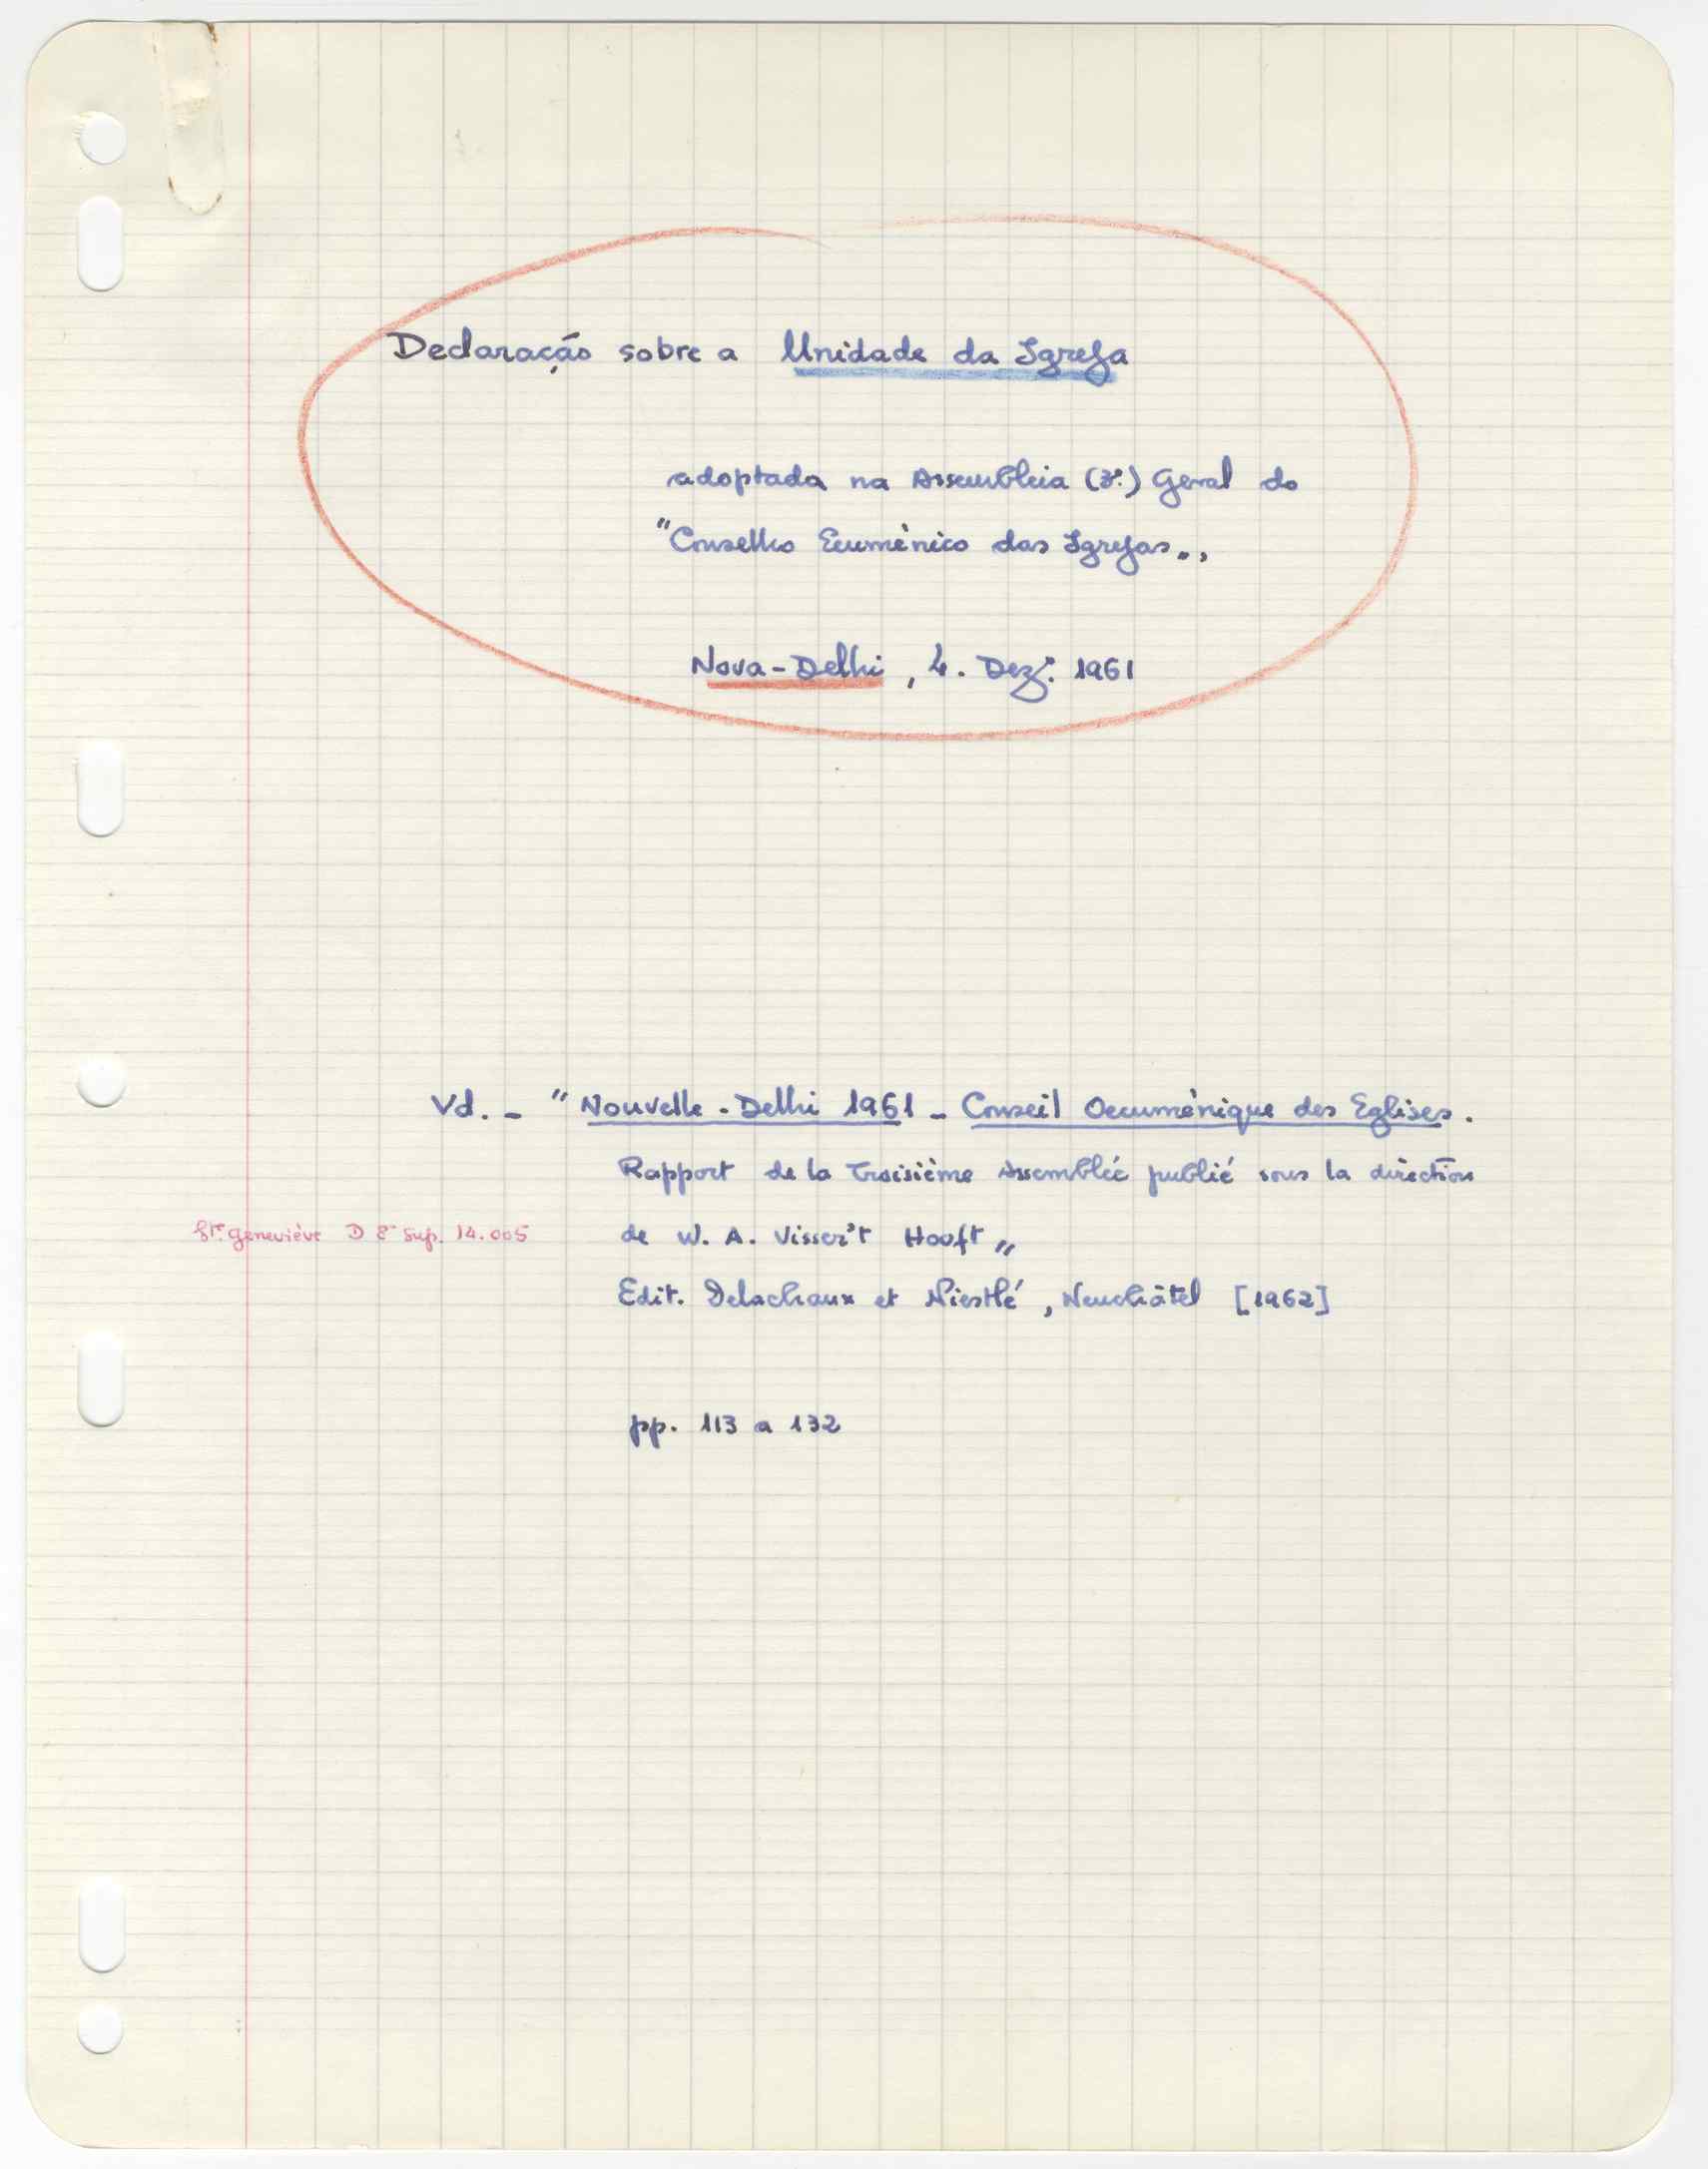 Declaração sobre a Unidade da Igreja
adoptada na Assembleia (3ª.) Geral do
"Conselho Ecuménico das Igrejas„,
Nova-Delhi, 4. Dez.º 1961
Vd. - "Nouvelle-Delhi 1961 - Conseil Oecuménique des Eglises.
Rapport de la Troisième Assemblée publié sous la direction
Ste. Geneviève D 8º Sup. 14.005
de W. A. Visser't Hooft„
Edit. Delachaux et Niestlé, Neuchâtel [1962]
pp. 113 a 132